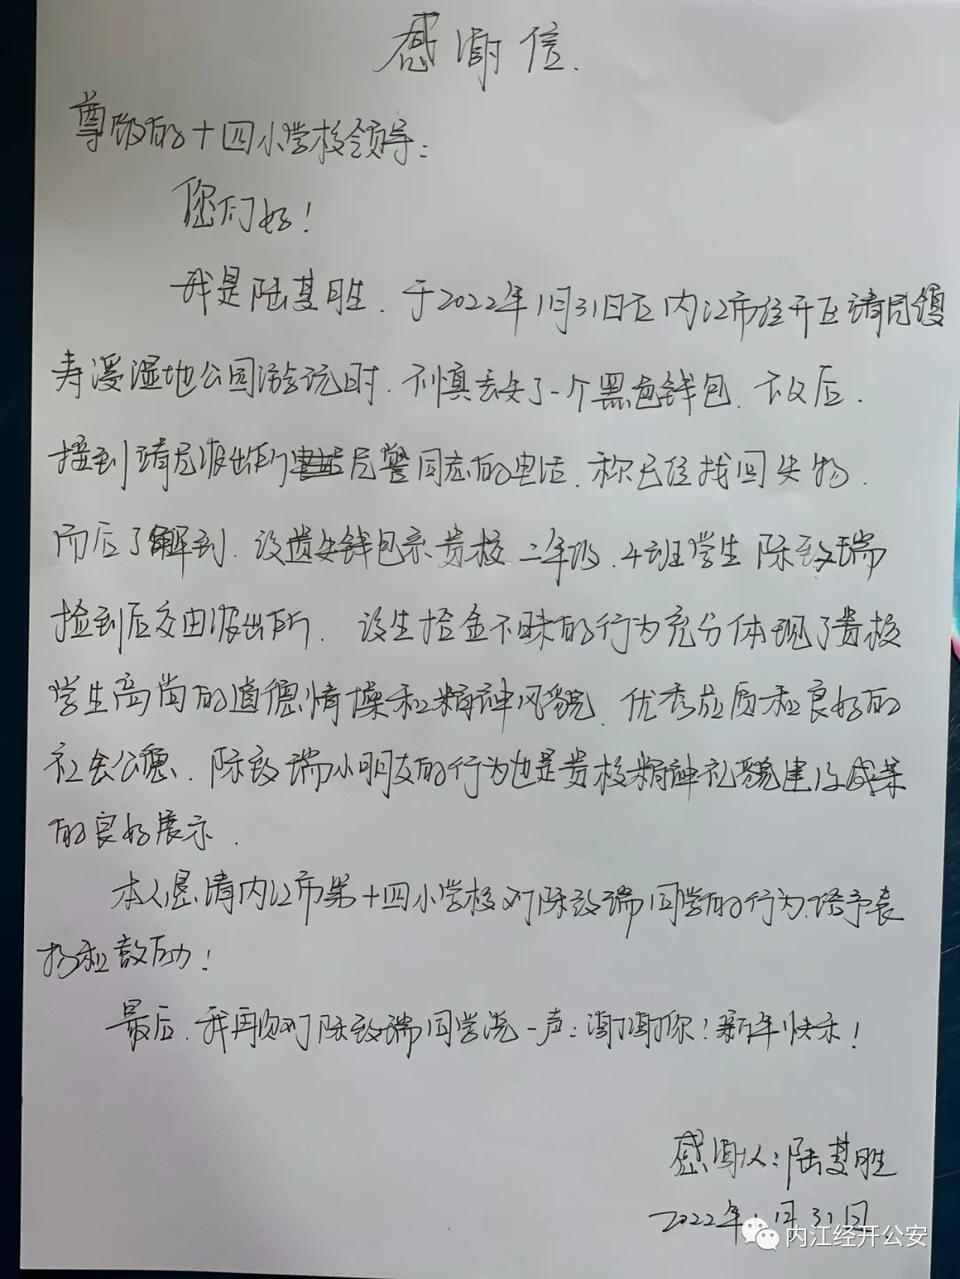 感谢信.
尊敬的十四小学校领导:
您们好!
我是陆基胜.于2022年1月31日在内江市经开区靖民镇
寿溪湿地公园游玩时.不慎丢失了一个黑色钱包.故后.
接到靖民派出所民警同志的电话.称已经找回失物.
而后了解到.该遗失钱包系贵校二年级.4班学生陈致瑞
捡到后交由派出所.该生拾金不昧的行为充分体现了贵校
学生高尚的道德情操和精神风貌.优秀品质和良好的
社会公德.陈致瑞小朋友的行为也是贵校精神礼貌建设成果
的良好展示.
本人恳请内江市第十四小学校对陈致瑞同学的行为.给予表
扬和鼓励!
最后.我再次对陈致瑞同学说一声:谢谢你!新年快乐!
感谢人:陆基胜
2022年1月31日
内江经开公安